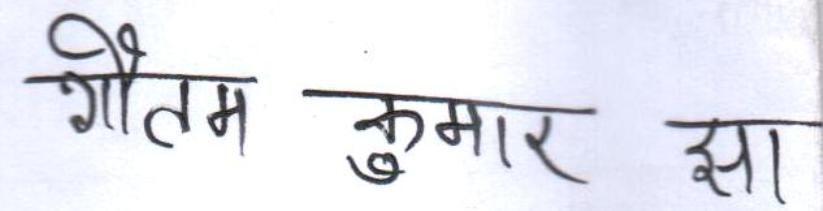 गौतम कुमार झा